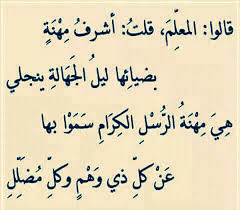 قالوا: المعلِّمَ، قلتُ: أشرفُ مِهْنَةٍ
بضيائِها ليلُ الجَهالةِ ينجلي
هِيَ مِهْنَةُ الرُّسْلِ الكِرَامِ سَمَوْا بها
عَنْ كلِّ ذي وَهْمٍ وكلِّ مُضَلِّلِ